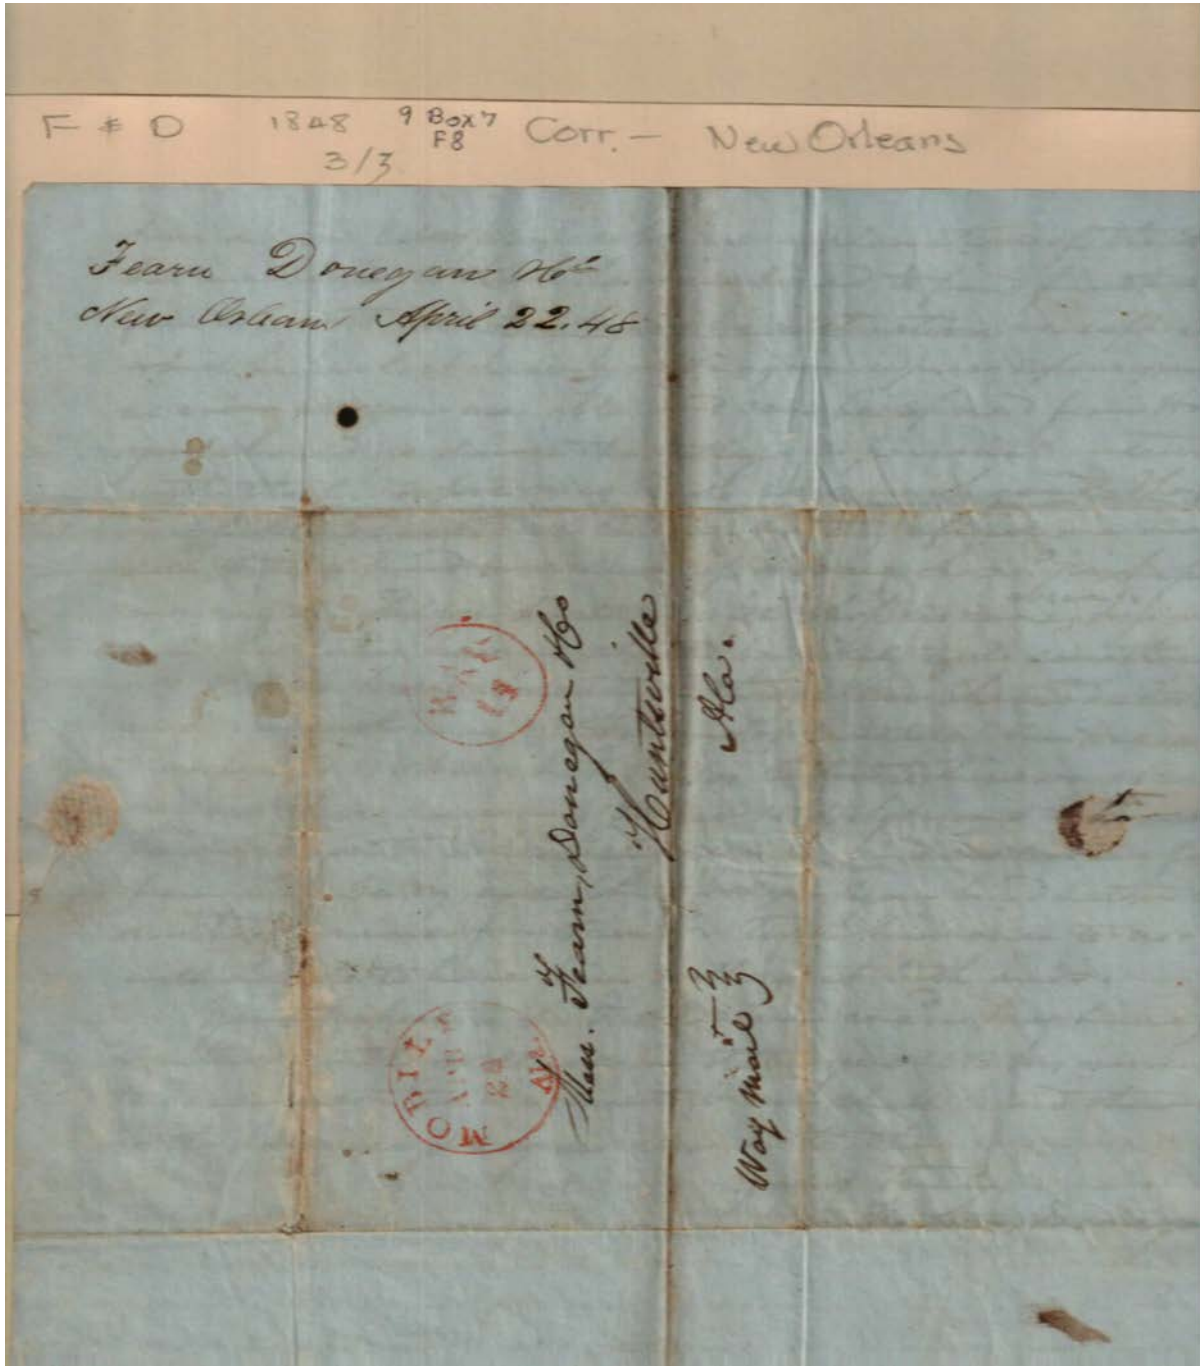 F & D 1848 9 Box 7 Corr. - New Orleans
3/3 F8
Fearn Donegan & Co
New Orleans April 22. 48
WAY
Mess. Fearn, Donegan & Co
Huntsville
Ala.
MOBILE
APR
24
Ala.
Way Mail